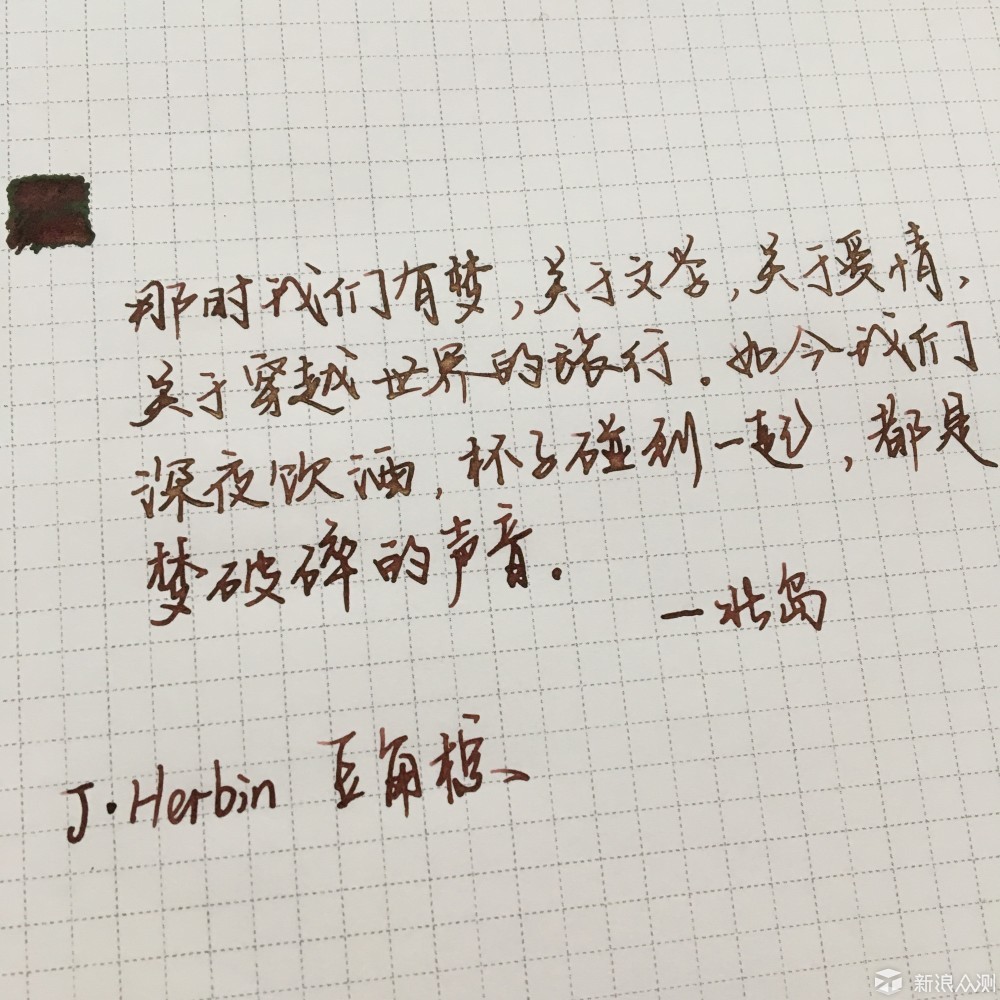 那时我们有梦,关于文学,关于爱情,
关于穿越世界的旅行.如今我们
深夜饮酒,杯子碰到一起,都是
梦破碎的声音.
—北岛
J·Herbin 豆角棕、
新浪众测